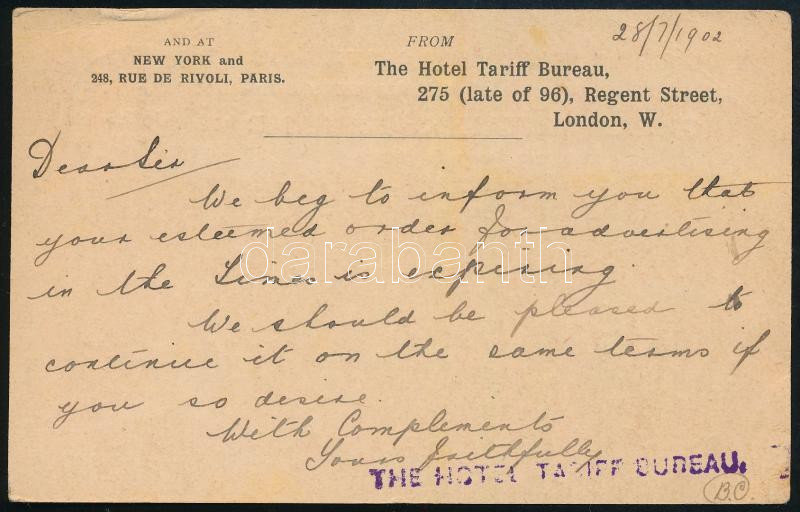 AND AT
NEW YORK and
248, RUE DE RIVOLI, PARIS.
FROM
28/7/1902
The Hotel Tariff Bureau,
275 (late of 96), Regent Street,
London, W.
Dear Sir
We beg to inform you that
your esteemed order for advertising
in the Times is expiring.
We should be pleased to
continue it on the same terms if
you so desire.
With Complements
Yours faithfully
THE HOTEL TARIFF BUREAU.
B.C.
darabanth